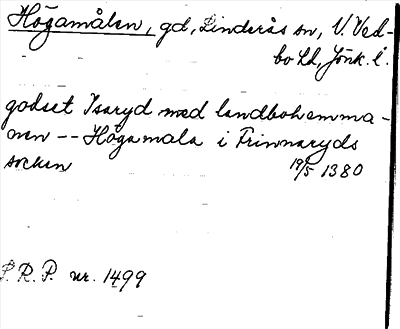 Högamålen, gd, Linderås sn, V. Ved-
bo hd, Jönk. l.
godset Isaryd med landbohemma-
nen -- Högamala i Frinnaryds
socken 19/5 1380
S.R.P. nr. 1499